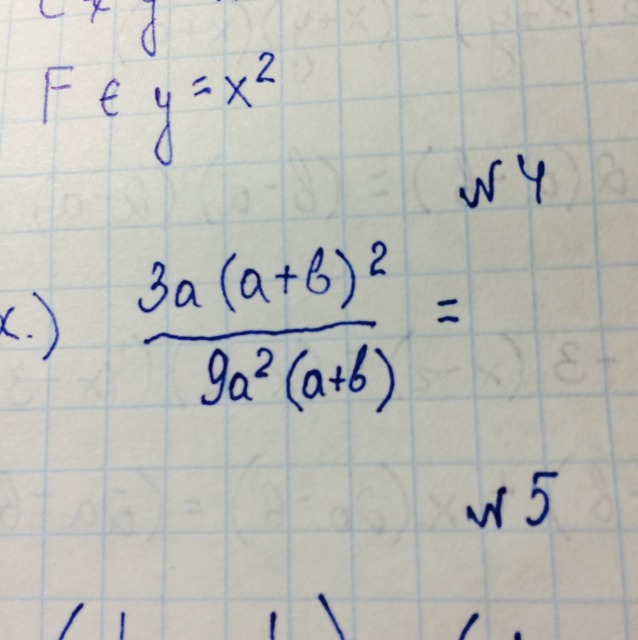 F ∈ y = x²
№ 4
3a(a+b)²
/ 9a²(a+b) =
№ 5